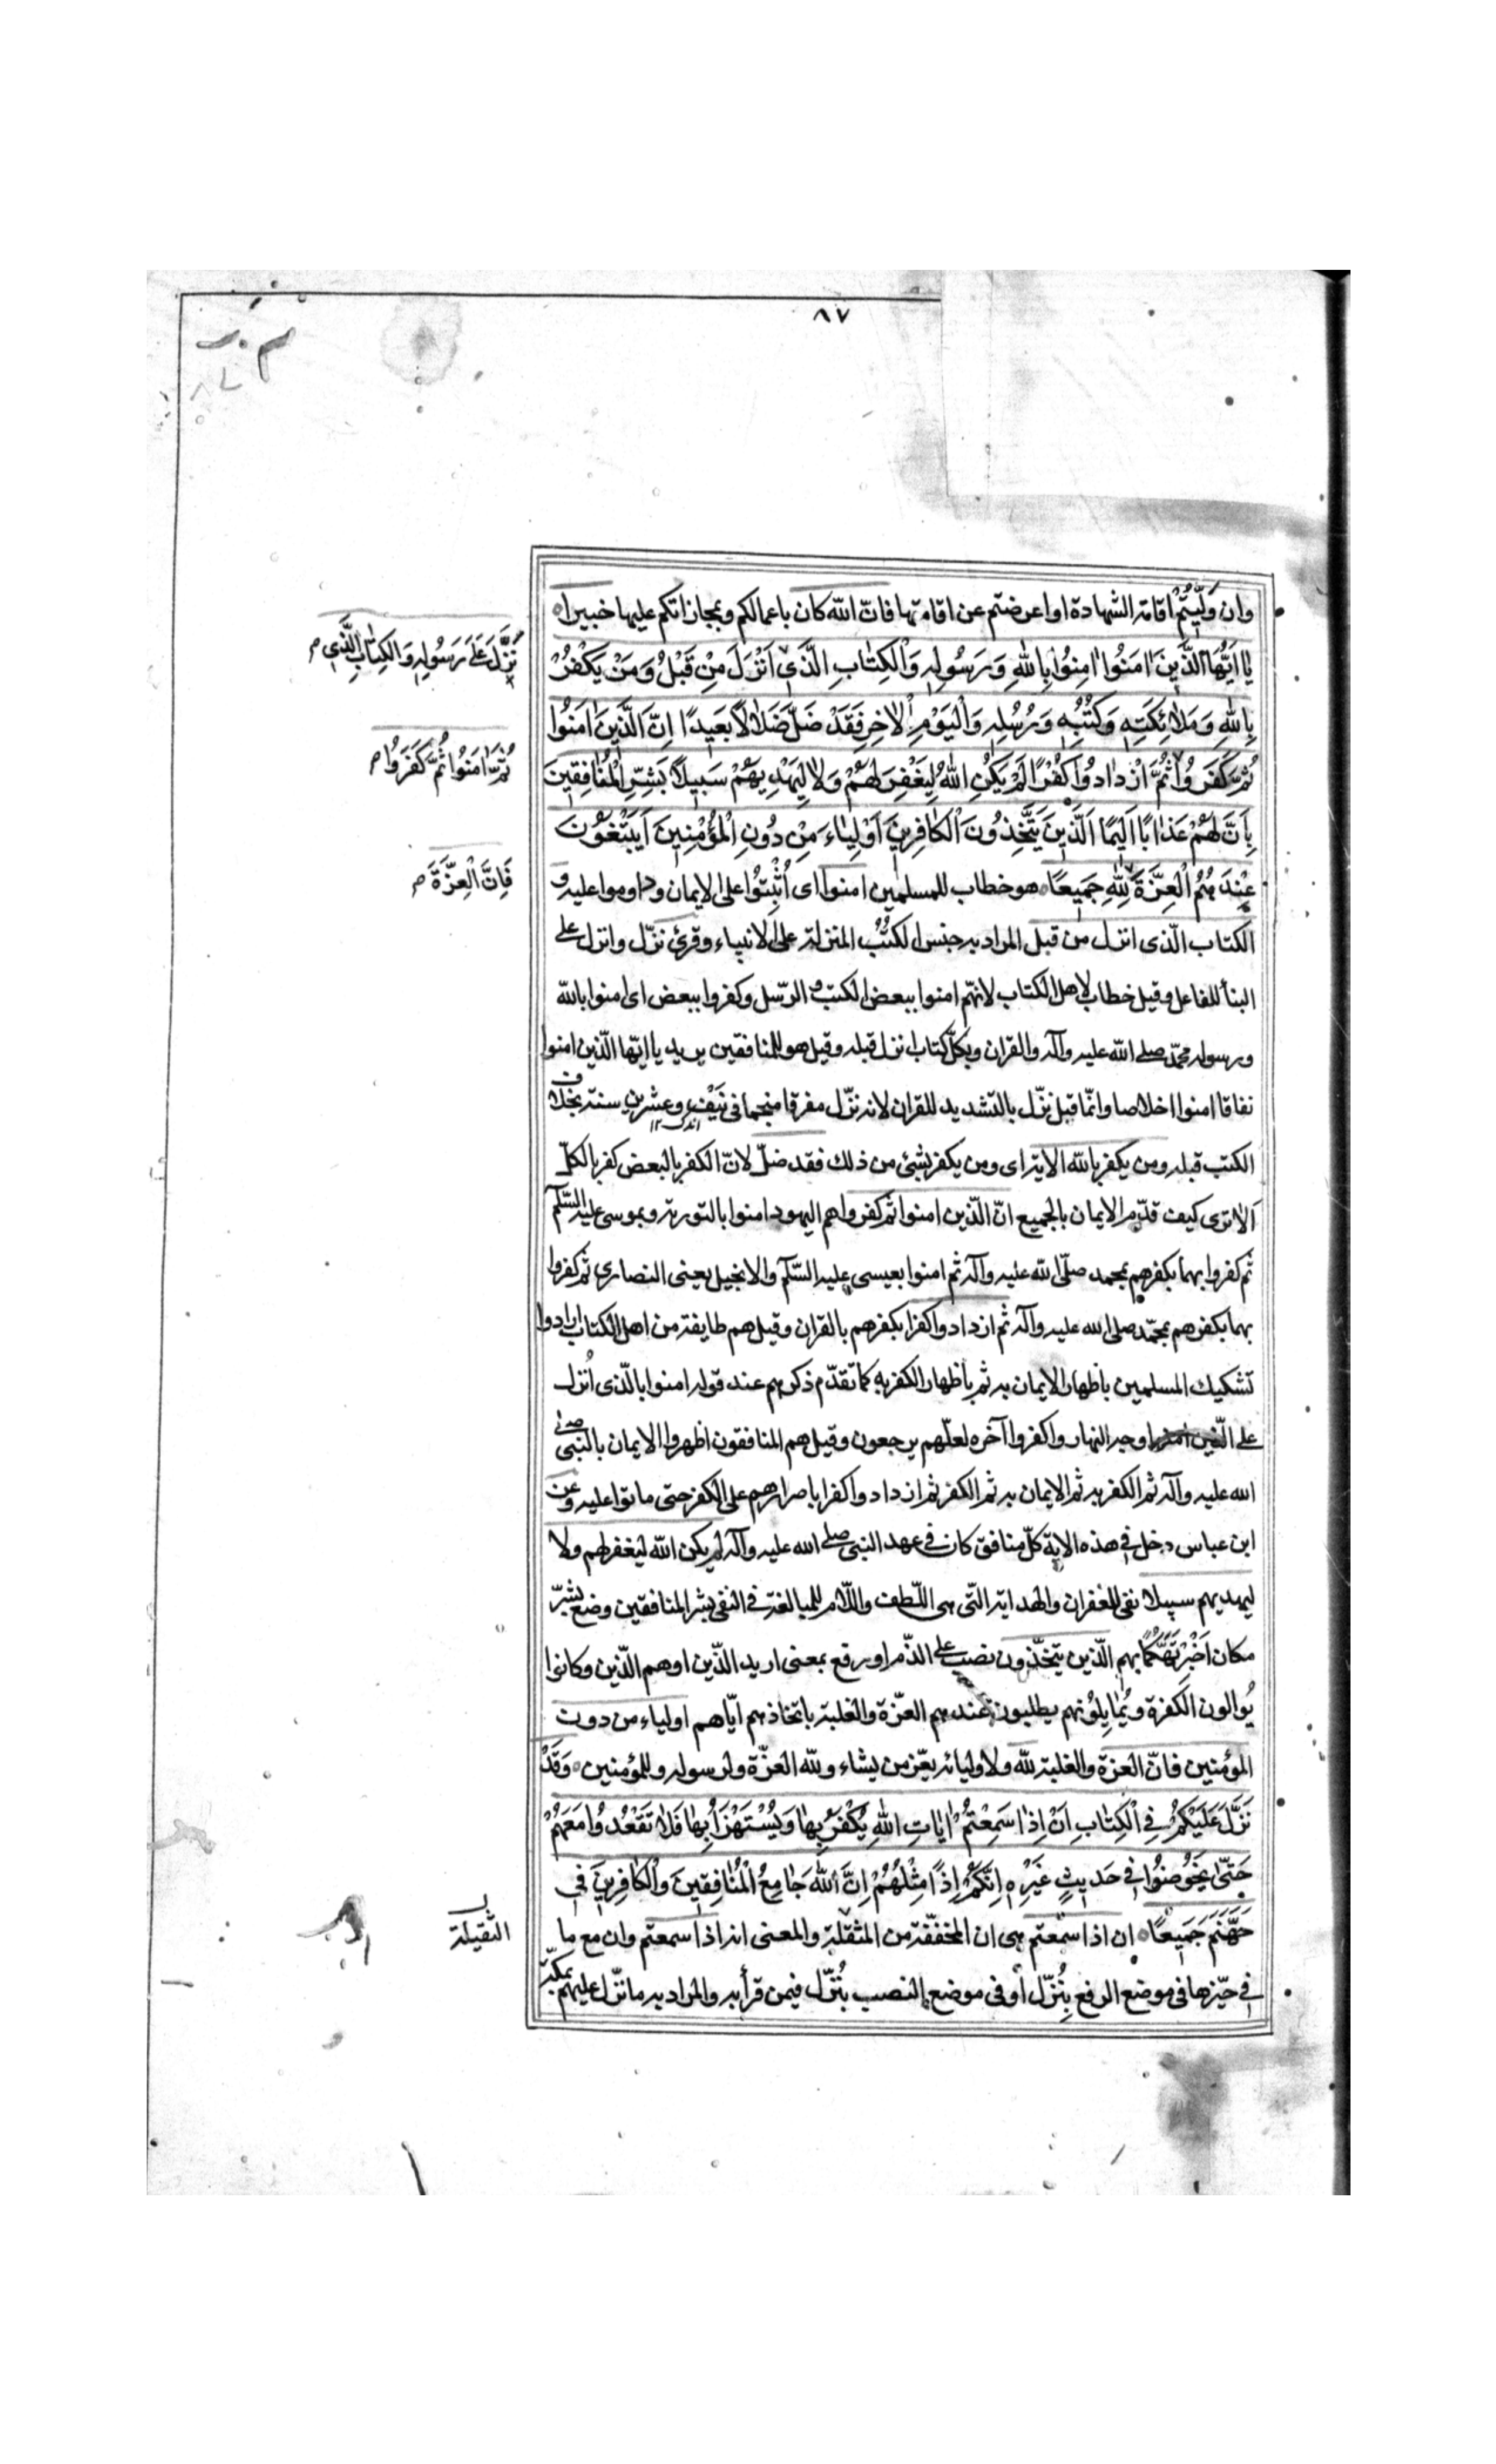 ٨٧
وان وَلِيتُمْ اقامة الشهادة او اعرضتم عن اقامتها فانّ الله كان باعمالكم وبمجازاتكم عليها خبيرا
يا اَيُّهَا الَّذِينَ اٰمَنُوا اٰمِنُوا بِاللهِ وَرَسُولِهِ وَالْكِتٰابِ الَّذِي اَنْزَلَ مِنْ قَبْلُ وَمَنْ يَكْفُرْ
نَزَّلَ عَلىٰ رَسُولِهِ وَالْكِتٰابِ الَّذِي
بِاللهِ وَمَلاٰئِكَتِهِ وَكُتُبِهِ وَرُسُلِهِ وَالْيَوْمِ الْاٰخِرِ فَقَدْ ضَلَّ ضَلاٰلاً بَعِيدًا اِنَّ الَّذِينَ اٰمَنُوا
ثُمَّ كَفَرُوا ثُمَّ ازْدٰادُوا كُفْرًا لَمْ يَكُنِ اللهُ لِيَغْفِرَ لَهُمْ وَلاٰ لِيَهْدِيَهُمْ سَبِيلاً بَشِّرِ الْمُنٰافِقِينَ
ثُمَّ اٰمَنُوا ثُمَّ كَفَرُوا
بِاَنَّ لَهُمْ عَذٰابًا اَلِيمًا اَلَّذِينَ يَتَّخِذُونَ الْكٰافِرِينَ اَوْلِيٰاءَ مِنْ دُونِ الْمُؤْمِنِينَ اَيَبْتَغُونَ
عِنْدَهُمُ الْعِزَّةَ لِلّٰهِ جَمِيعًا هو خطاب للمسلمين امنوا اى اُثْبِتُوا على الايمان وداوموا عليه و
فَاِنَّ الْعِزَّةَ
الكتاب الّذى انزل من قبل المراد به جنس الكُتُب المنزلة على الانبياء وقرئ نزّل وانزل على
البنأ للفاعل وقيل خطاب لاهل الكتاب لانهم امنوا ببعض الكتب والرّسل وكفروا ببعض اى امنوا بالله
ورسوله محمّد صلى الله عليه وآله والقران وبكلّ كتاب نزل قبله وقيل هو للمنافقين يريد يا ايّها الّذين امنوا
نفاقا امنوا اخلاصا وانّما قيل نزّل بالتشديد للقران لانه نزّل مفرقا منجما فى نَيِّف وعشرين سنة بخلاف
الكتب قبله ومن يكفر بالله الاية اى ومن يكفر بشئ من ذلك فقد ضلّ لانّ الكفر بالبعض كفر بالكلّ
اَلا ترى كيف قدّم الايمان بالجميع انّ الّذين امنوا ثم كفروا هم اليهود امنوا بالتورية وبموسى عليه السّلم
ثم كفروا بهما بكفرهم بمحمد صلّى الله عليه وآله ثم امنوا بعيسى عليه السّلم والانجيل يعنى النصارى ثم كفروا
بهما بكفرهم بمحمّد صلى الله عليه وآله ثم ازدادوا كفرا بكفرهم بالقران وقيل هم طايفة من اهل الكتاب ارادوا
تشكيك المسلمين باظهار الايمان به ثم باظهار الكفر به كما تقدّم ذكرهم عند قوله امنوا بالّذى اُنزل
على الّذين امنوا وجه النهار واكفروا آخره لعلّهم يرجعون وقيل هم المنافقون اظهروا الايمان بالنّبى صلى
الله عليه وآله ثم الكفر به ثم الايمان به ثم الكفر ثم ازدادوا كفرا باصرارهم على الكفر حتى ماتوا عليه وعن
ابن عباس دخل فى هذه الاية كلّ منافق كان فى عهد النبى صلى الله عليه وآله لم يكن الله ليغفر لهم ولا
ليهديهم سبيلا نفى للغفران والهداية الّتى هى اللّطف واللّام للمبالغة فى النفى بشر المنافقين وضع بشّر
مكان اَخْبِرْ تَهَكُّمًا بهم الّذين يتخذون نصب على الذّم او رفع بمعنى اريد الّذين او هم الّذين وكانوا
يُوالون الكفرة ويُمايِلُونهم يطلبون عندهم العزّة والغلبة باتخاذهم ايّاهم اولياء من دون
المؤمنين فانّ العزة والغلبة لله ولاوليائه يعزّ من يشاء ولله العزّة ولرسوله وللمؤمنين وَقَدْ
نَزَّلَ عَلَيْكُمْ فِي الْكِتٰابِ اَنْ اِذٰا سَمِعْتُمْ اٰيٰاتِ اللهِ يُكْفَرُ بِهٰا وَيُسْتَهْزَأُ بِهٰا فَلاٰ تَقْعُدُوا مَعَهُمْ
حَتّٰى يَخُوضُوا فِي حَدِيثٍ غَيْرِهِ اِنَّكُمْ اِذًا مِثْلُهُمْ اِنَّ اللهَ جٰامِعُ الْمُنٰافِقِينَ وَالْكٰافِرِينَ فِي
جَهَنَّمَ جَمِيعًا ان اذا سمعتم هى ان المخفّفة من المثقلة والمعنى انه اذا سمعتم وان مع ما
الثقيلة
فى حيّزها فى موضع الرفع بِنُزّل او فى موضع النصب بنُزّل فيمن قرأ به والمراد به ما نزّل عليهم بمكة